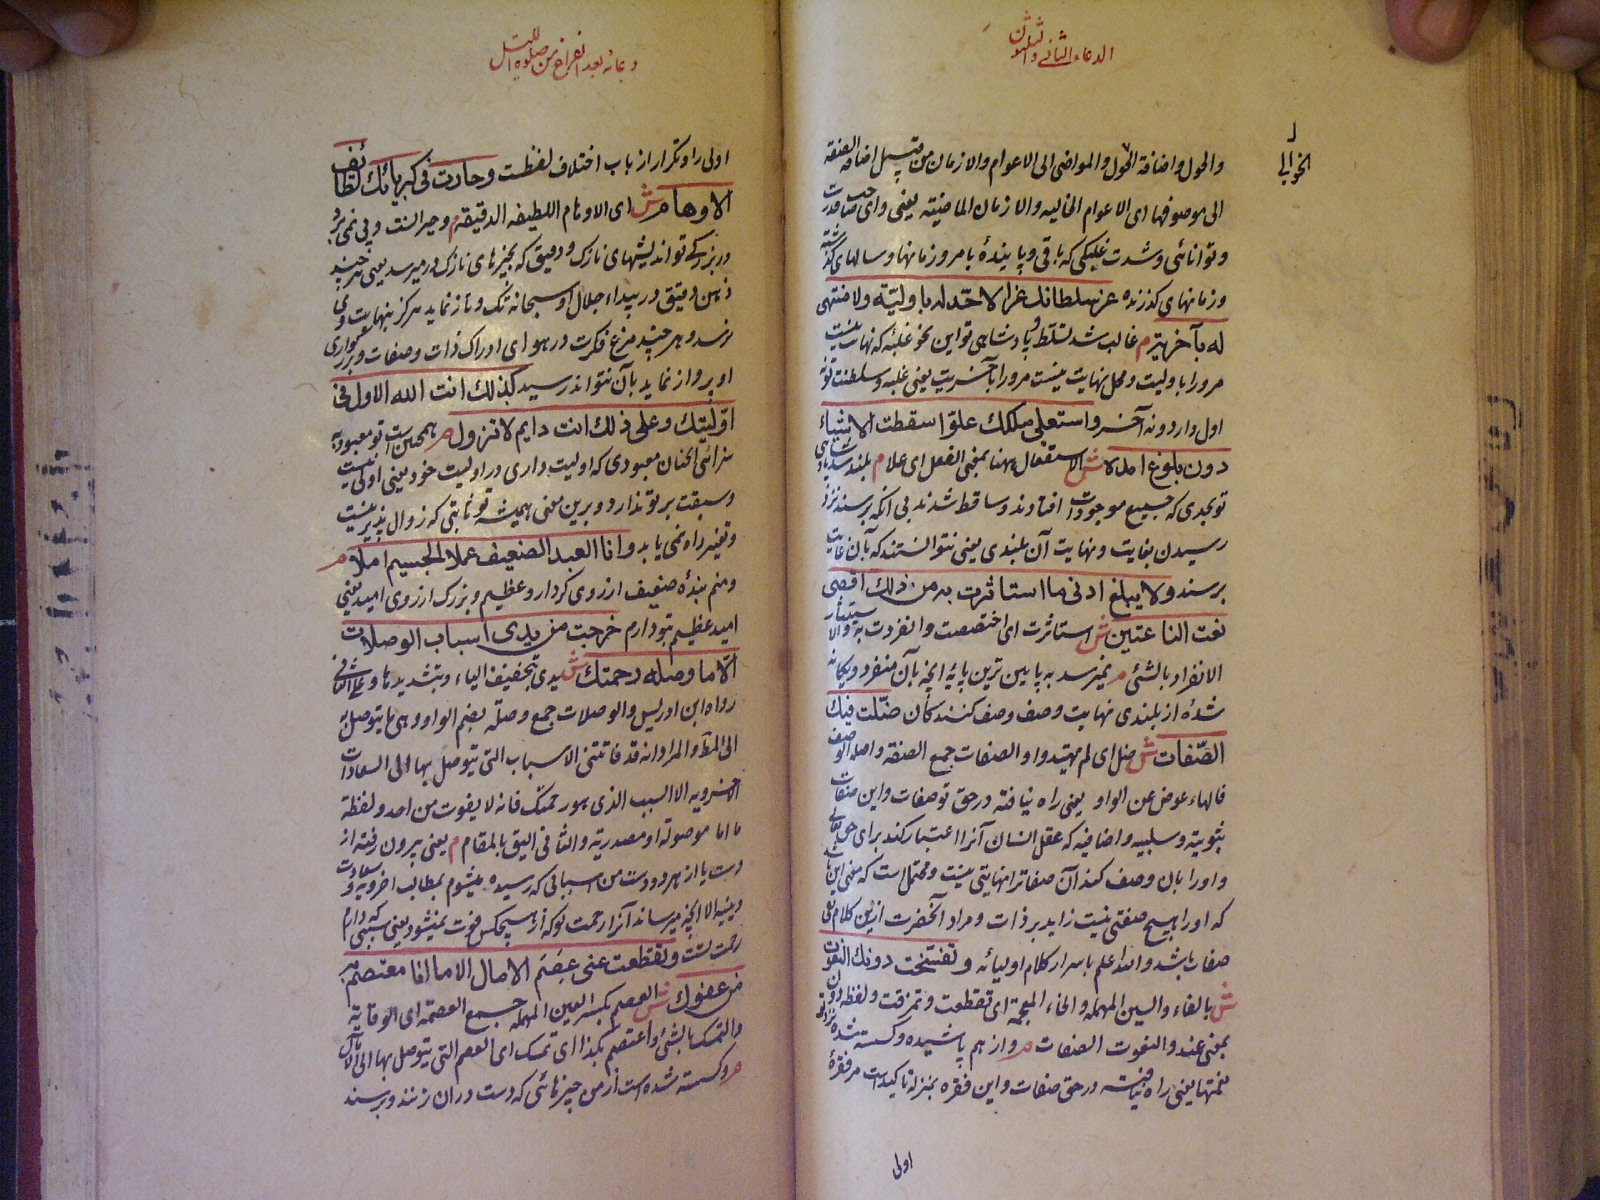 الدعاء الثاني والثلثون
والحول واضافة الحول والمواضي الى الاعوام والازمان من قبيل اضافة الصفة
الخوالي
الى موصوفها اى الاعوام الخاليه والازمان الماضيته يعنى واى صاحب قدرت
وتوانائى وشدت غلبكى كه باقى وپاينده با مرور زمانها وسالهاى گذشته
وزمانهاى گذرنده عز سلطانك عزا لا حد له باوليّة ولا منتهى
له بآخريّة م غالب شد تسلط وپادشاهى تو اين نحو غلبه كه نهايت نيست
مرورا باوليت ومحل نهايت نيست مرورا بآخريت يعنى غلبه وسلطنت تو نه
اول دارد ونه آخر واستعلى ملكك علوّا سقطت الاشياء
دون بلوغ امده ش الاستفعال ههنا بمعنى الفعل اى علا م بلند شد پادشاهى
تو بحدى كه جميع موجودات افتادند وساقط شدند بى انكه برسند نزد
رسيدن بغايت ونهايت آن بلندى يعنى نتوانستند كه بآن غايت
برسند ولا يبلغ ادنى ما استاثرت به من ذلك اقصى
نعت الناعتين ش استاثرت اى اختصصت وانفردت به والاستيثار
الانفراد بالشئ م نميرسد به پايين ترين پايه آنچه بآن منفرد ويگانه
شدهٔ از بلندى نهايت وصف وصف كنندكان ضلّت فيك
الصّفات ش ضل اى لم يهتدوا والصفات جمع الصفة واصله الوصف
فالهاء عوض عن الواو يعنى راه نيافته در حق تو صفات واين صفات
ثبوتيه وسلبيه واضافيه كه عقل انسان آنرا اعتبار كند براى حق تعالى
واورا بان وصف كند آن صفاترا نهايتى نيست ومحتمل است كه معنى اين باشد
كه اورا هيچ صفتى نيست زايد بر ذات ومراد آنحضرت ازين كلام نفى
صفات باشد والله اعلم باسرار كلام اوليائه وتفسّخت دونك النعوت
ش بالفاء والسين المهمله والخاء المعجمة اى تقطعت وتمزقت ولفظه دون
بمعنى عند والنعوت الصفات م واز هم پاشيده وگسسته شده نزد تو
نعتها يعنى راه نيافته در حق صفات واين فقره بمنزله تاكيد است مر فقرهٔ
اولى
دعائه بعد الفراغ من صلوة الليل
اولى را وتكرار از باب اختلاف لفظست وحارت فى كبريائك لطائف
الاوهام ش اى الاوهام اللطيفه الدقيقه م وحيرانست وپى نمى برد
در بزركى تو انديشهاى نازك ودقيق كه بچيزهاى نازك در ميرسد يعنى هر چند
ذهن دقيق در بيداء جلال او سبحانه تك وتاز نمايد هركز بنهايت وى
نرسد وهر چند مرغ فكرت در هواى ادراك ذات وصفات وبزركوارى
او پرواز نمايد بآن نتواند رسيد كذلك انت الله الاول فى
اوّليّتك وعلى ذلك انت دايم لا تزول م همچنين است تو معبود به
سزائى انچنان معبودى كه اوليت دارى در اوليت خود يعنى اولى نيست
وسبقت بر تو ندارد وبرين معنى هميشه تو ثابتى كه زوال پذير نيست
وتغير راه نمى يابد وانا العبد الضعيف عملا الجسيم املا م
ومنم بندهٔ ضعيف از روى كردار وعظيم وبزرك از روى اميد يعنى
اميد عظيم بتو دارم خرجت من يدى اسباب الوصلات
الّا ما وصله رحمتك ش يدى بتخفيف الياء وبتشديدها وعلى الثانى
رواه ابن ادريس والوصلات جمع وصلة بضم الواو وهى ما يتوصل به
الى المط والمراد انه قد فاتتنى الاسباب التى يتوصل بها الى السعادات
الاخرويه الا السبب الذى هو رحمتك فانه لا يفوت من احد ولفظة
ما اما موصولة او مصدرية والثانى اليق بالمقام م يعنى بيرون رفته از
دست يا از هر دو دست من اسبابى كه رسيده ميشوم بمطالب اخرويه وسعادت
دينيه الا انچيز ميرساند آنرا رحمت تو كه از هيچكس فوت نميشود يعنى سببى كه دارم
رحمت تست وتقطعت عنى عصم الامال الا ما انا معتصم به
من عفوك ش العصم بكسر العين المهمله جمع العصمة اى الوقاية
والتمسك بالشئ واعتصم بكذا اى تمسك اى العصم التى يتوصل بها الى الامال
م وگسسته شده است از من چيزهائى كه دست دران زنند وبرسند